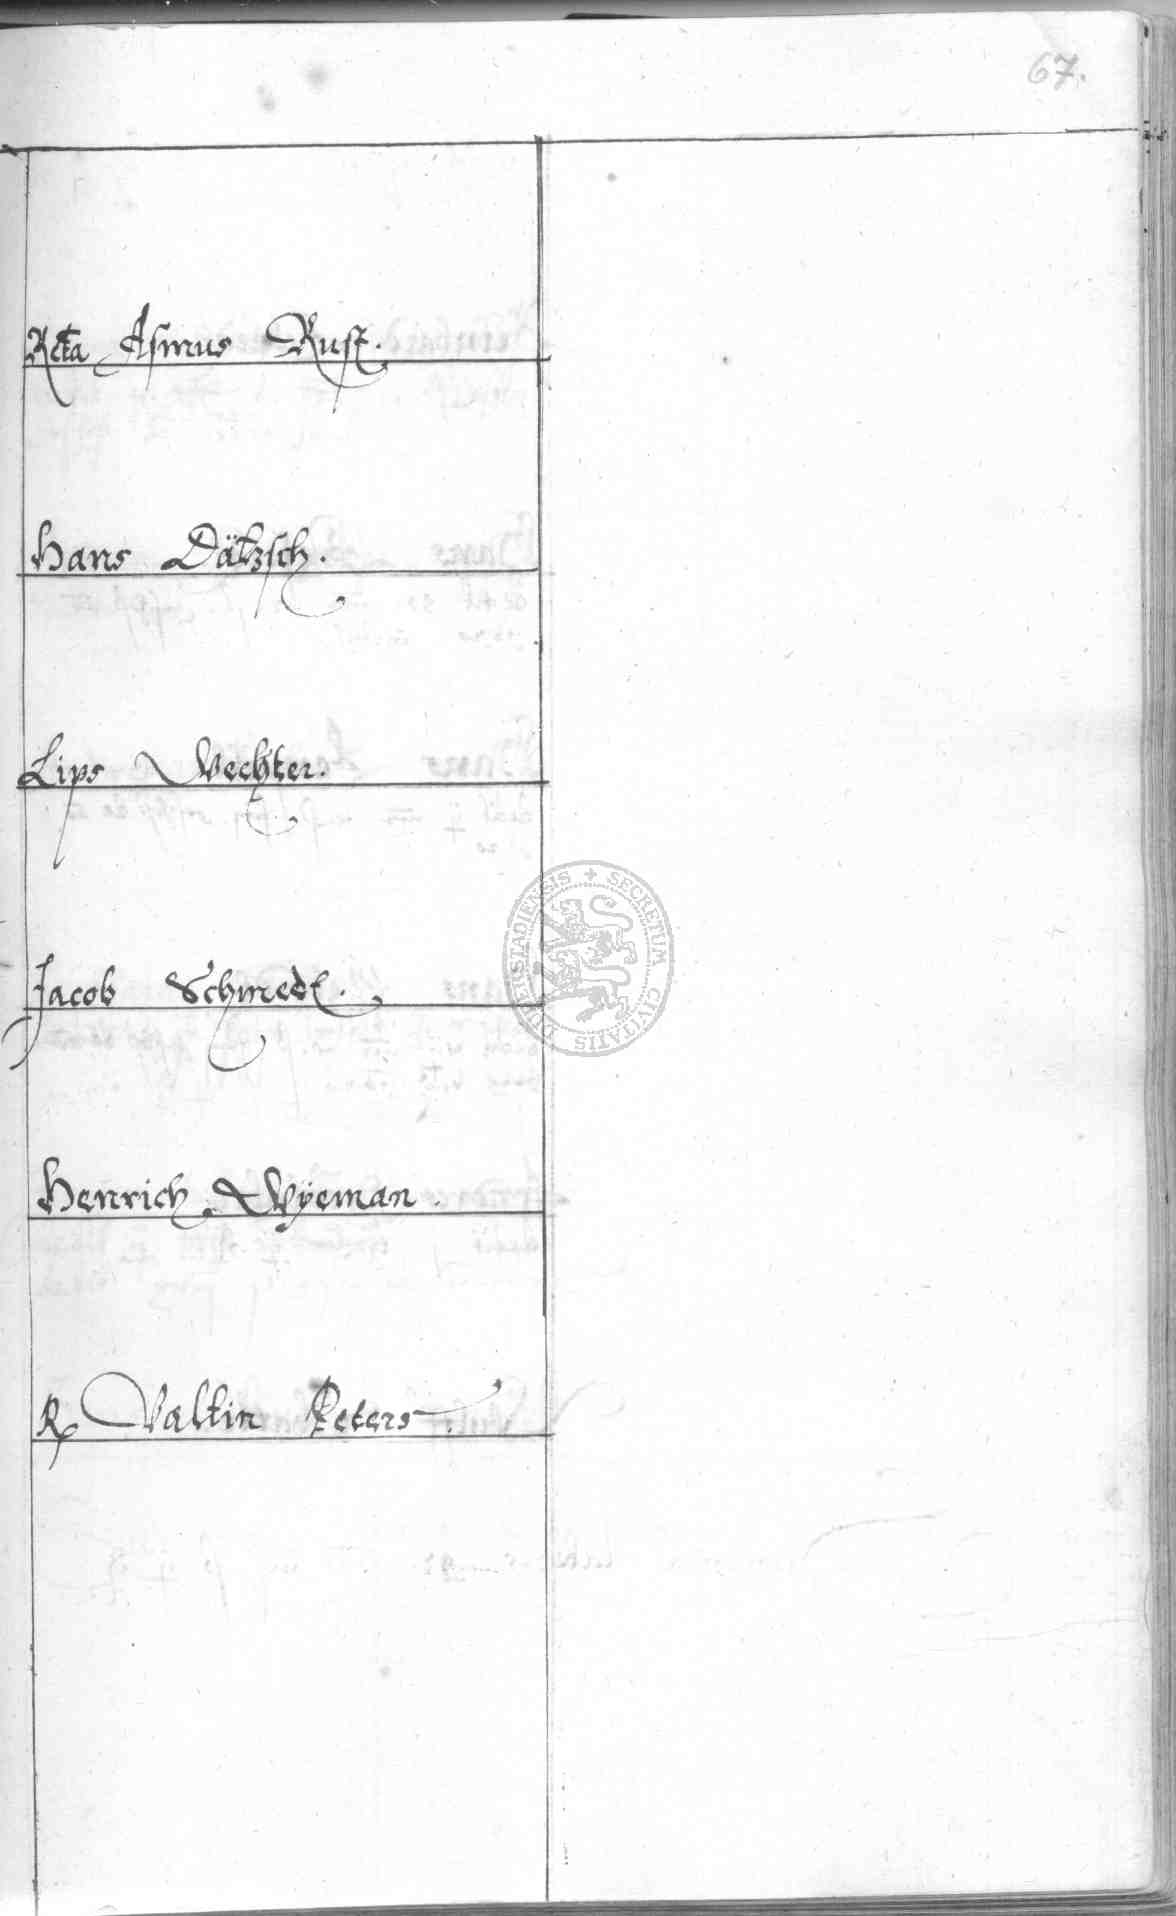 67.
Rcta Asmus Rust.
Hans Dätzsch.
Lips Wechter.
Jacob Schmedt.
Henrich Wÿeman.
R Valtin Peters.
SECRETUM CIVITATIS DUDERSTADIENSIS